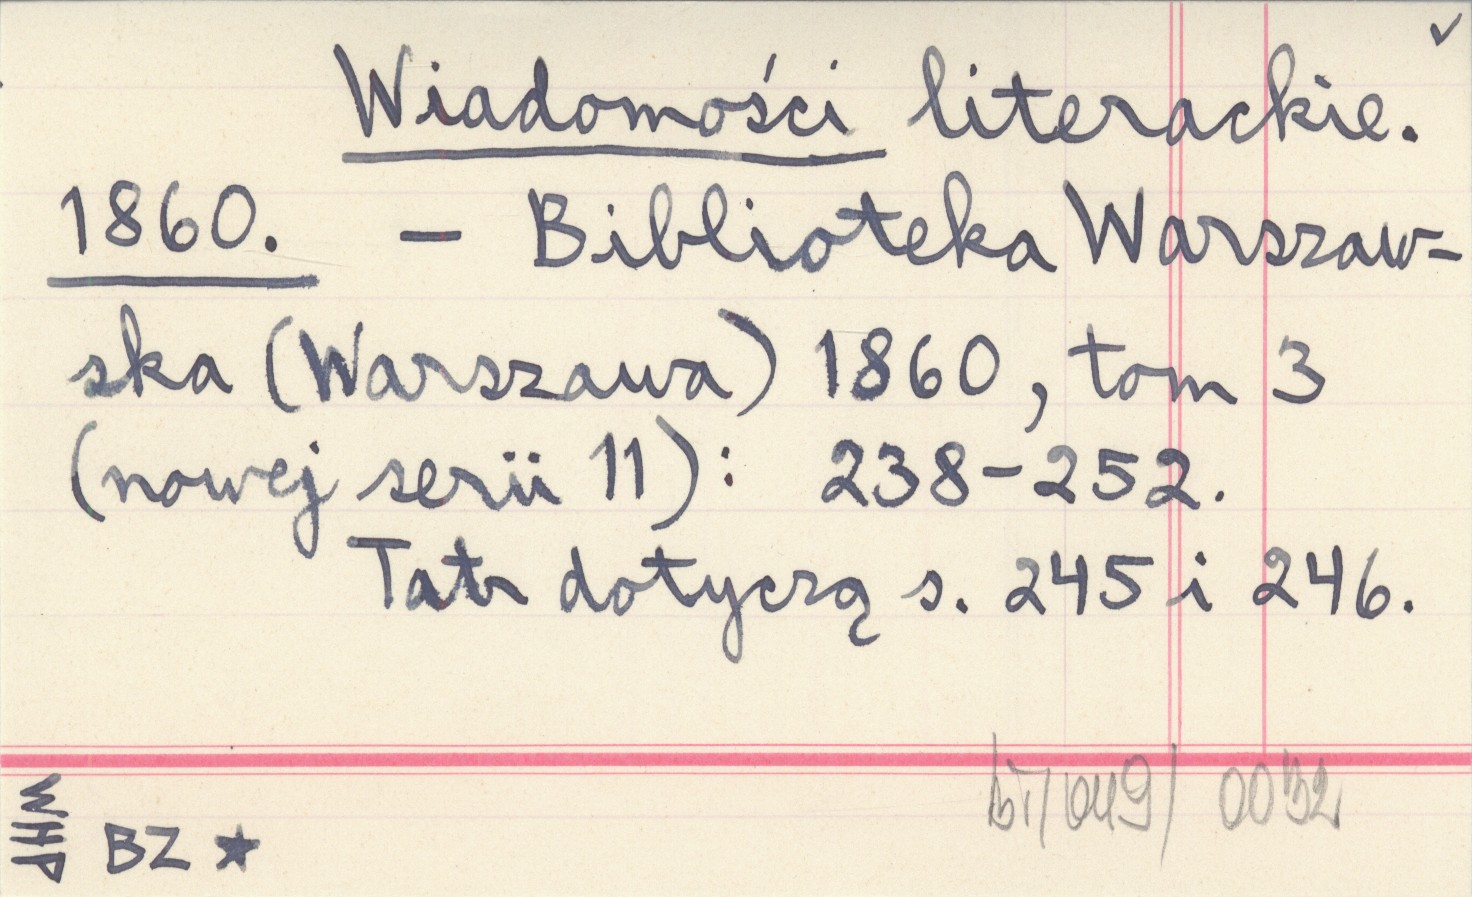 ✓
Wiadomości literackie.
1860. – Biblioteka Warszaw-
ska (Warszawa) 1860, tom 3
(nowej serii 11): 238-252.
Tatr dotyczą s. 245 i 246.
BT/049/ 0032
WHP
BZ ★